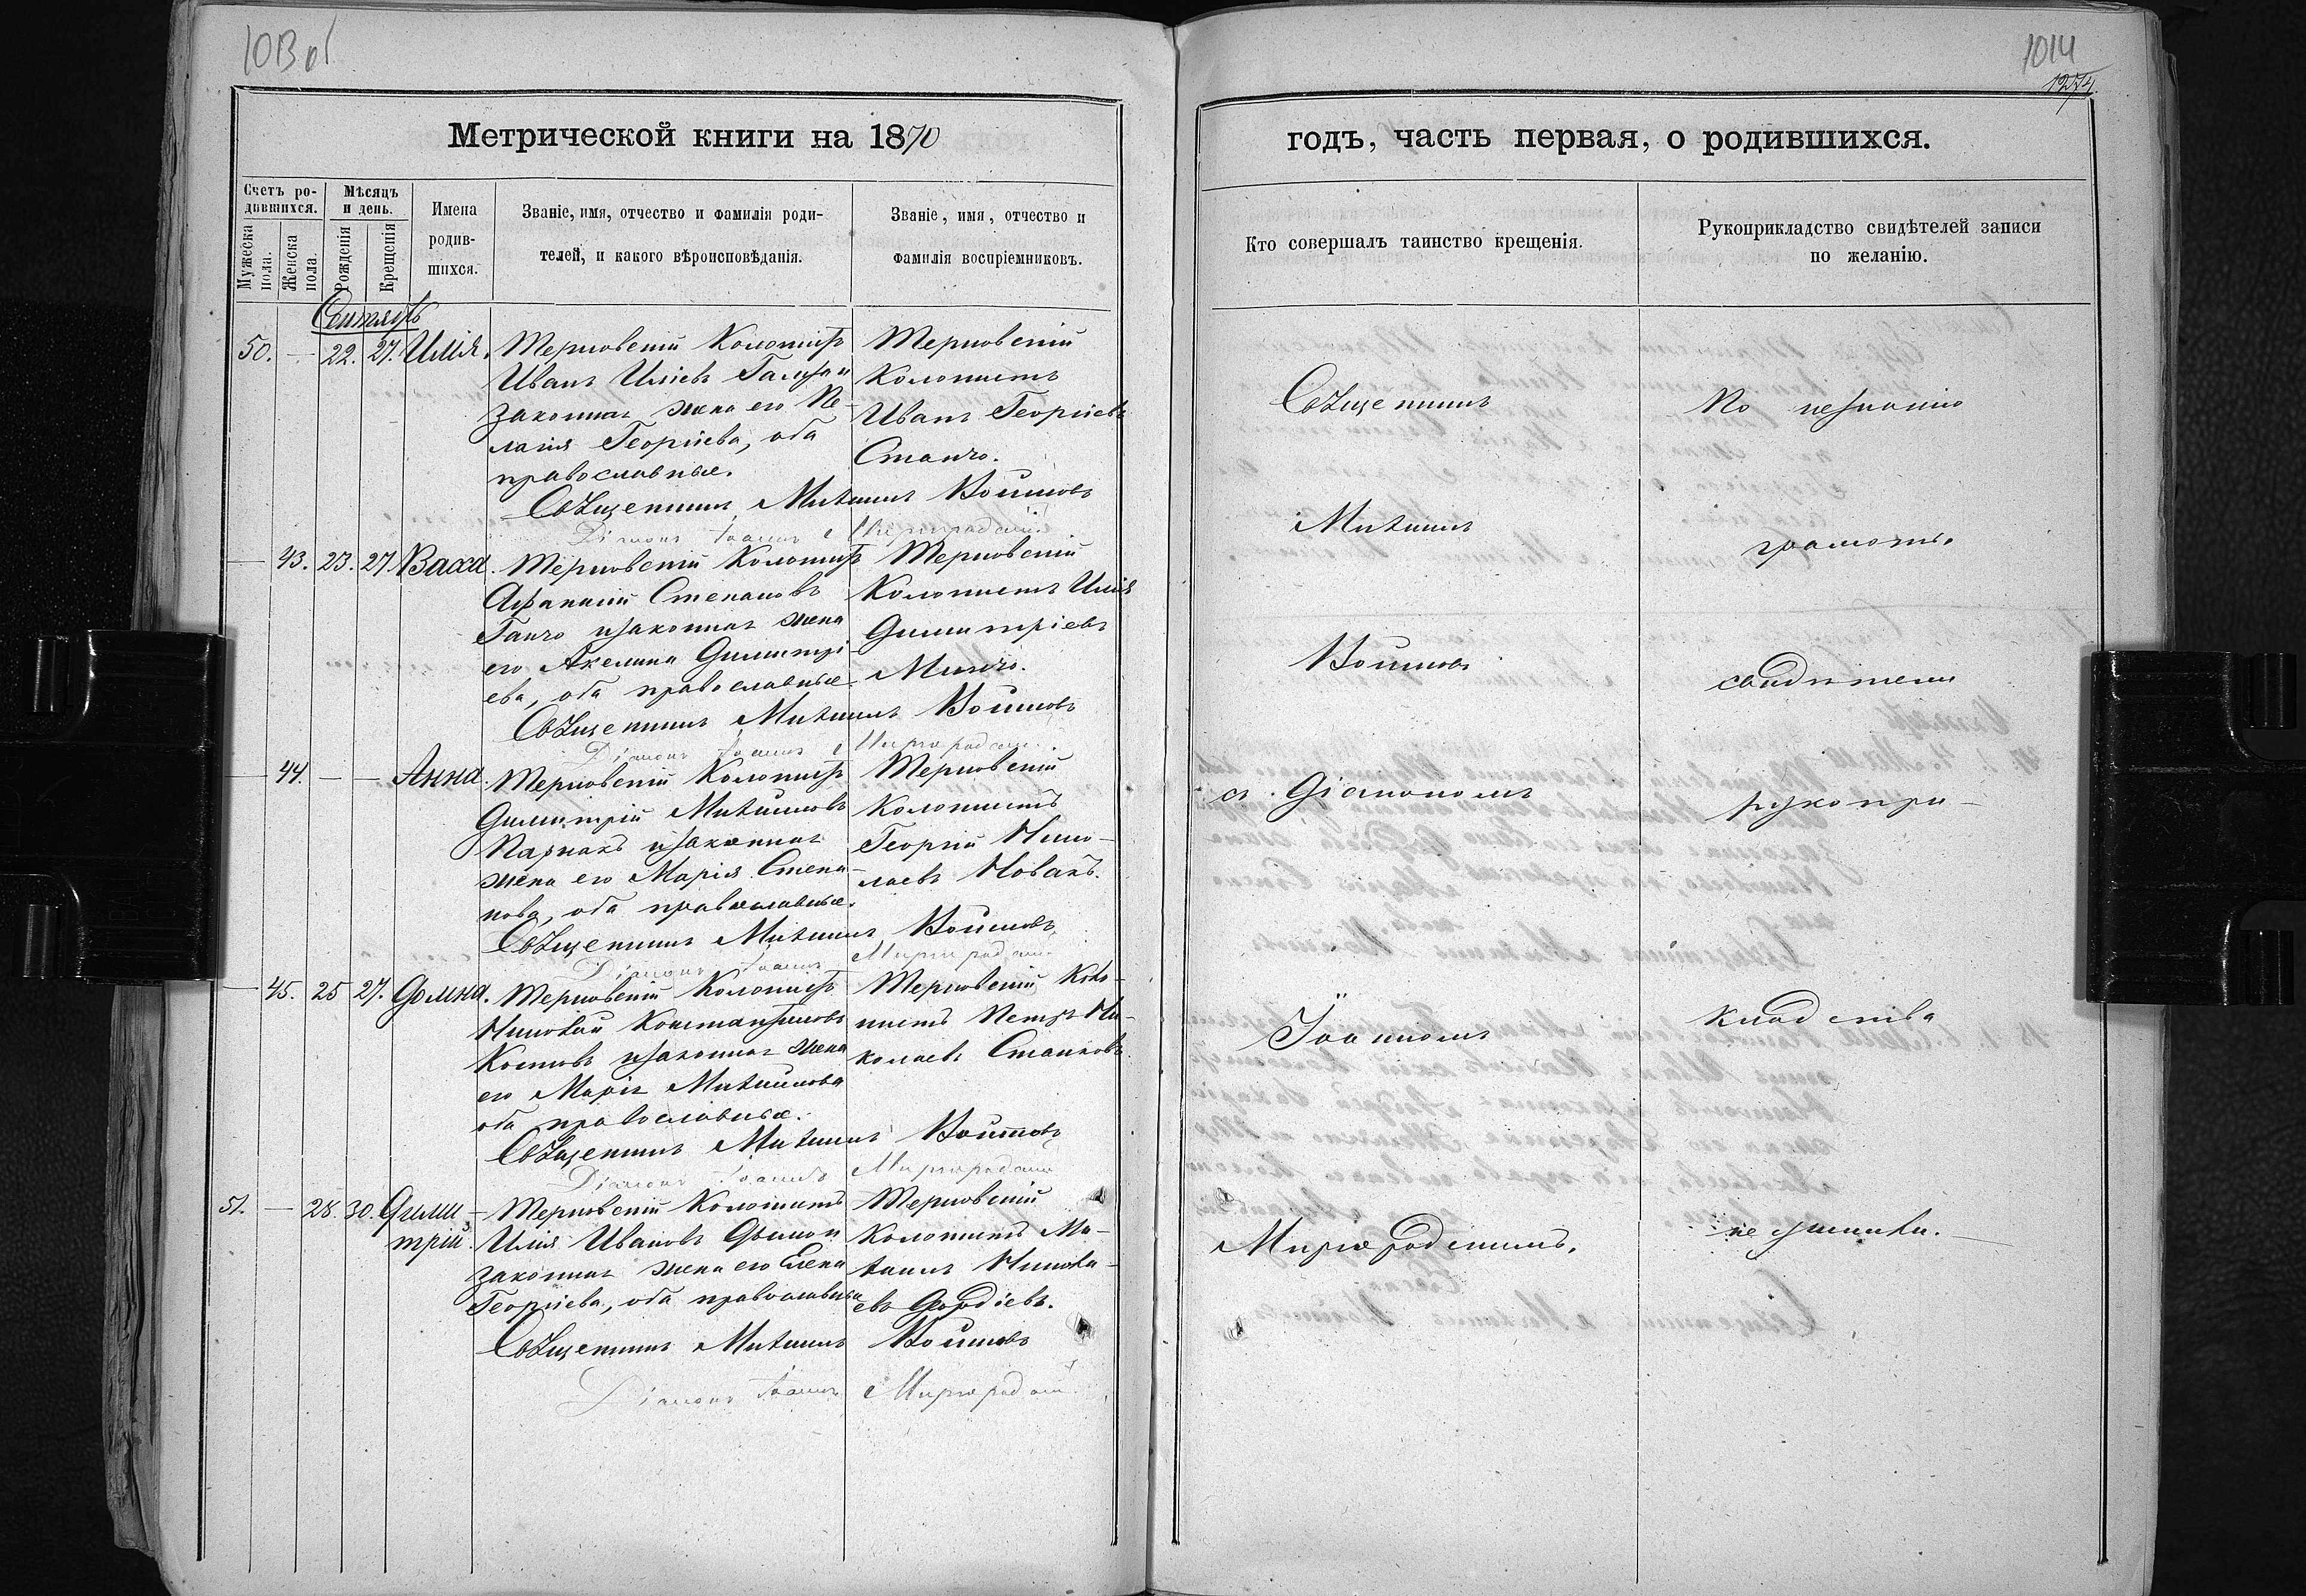 1013 об
1014
1274
Метрической книги на 1870
годъ, часть первая, о родившихся.
Счетъ ро-
дившихся.
Мужеска пола.
Женска пола.
Мѣсяцъ
и день.
Рожденія
Крещенія
Имена
родив-
шихся.
Званіе, имя, отчество и фамилія роди-
телей, и какого вѣроисповѣданія.
Званіе, имя, отчество и
фамилія воспріемниковъ.
Кто совершалъ таинство крещенія.
Рукоприкладство свидѣтелей записи
по желанію.
Сентябрь
50. — 22. 27. Илія.
Терновскій Колонистъ
Иванъ Иліевъ и
законная жена его Пе-
лагія Георгіева, оба
православные.
Терновскій
Колонистъ
Иванъ Георгіевъ
Станчо.
Священникъ Михаилъ Войновъ
Діаконъ Іоаннъ Миргородскій
— 43. 23. 27. Васса.
Терновскій Колонистъ
Афанасій Степановъ
Ганчо и законная жена
его Акелина Димитрі-
ева, оба православные.
Терновскій
Колонистъ Илія
Димитріевъ
Минчо.
Священникъ Михаилъ Войновъ
Діаконъ Іоаннъ Миргородскій
— 44. — — Анна.
Терновскій Колонистъ
Димитрій Михаиловъ
и законная
жена его Марія Степа-
нова, оба православные.
Терновскій
Колонистъ
Георгій Нико-
лаевъ Новакъ.
Священникъ Михаилъ Войновъ
Діаконъ Іоаннъ Миргородскій
— 45. 25 27. Домна.
Терновскій Колонистъ
Николай Константиновъ
и законная жена
его Марія Михаилова
оба православные.
Терновскій Коло-
нистъ Петръ Ни-
колаевъ Станковъ.
Священникъ Михаилъ Войновъ
Діаконъ Іоаннъ Миргородскій
51. — 28. 30. Дими-
трій.
Терновскій Колонистъ
Илія Ивановъ и
законная жена его Елена
Георгіева, оба православные
Терновскій
Колонистъ Ми-
хаилъ Никола-
евъ Дордіевъ.
Священникъ Михаилъ Войновъ
Діаконъ Іоаннъ Миргородскій
Священникъ
Михаилъ
Войновъ
съ Діакономъ
Іоанномъ
Миргородскимъ.
По незнанію
грамоты
свидѣтели
рукопри-
кладства
не учинили.